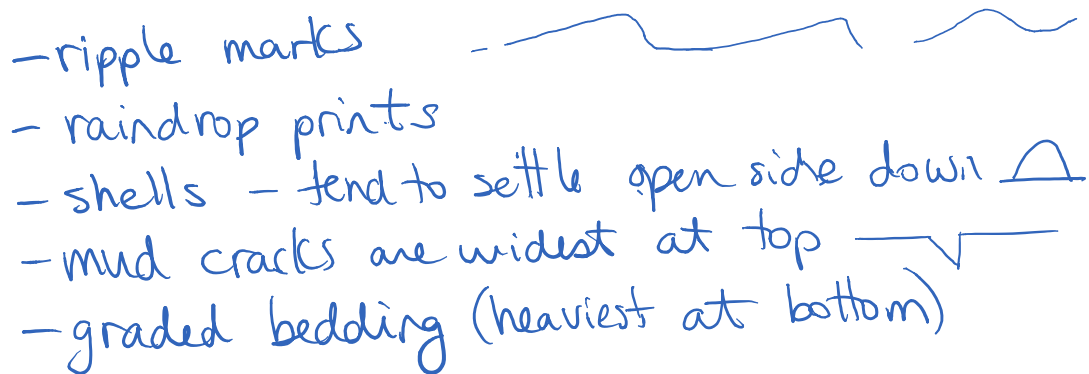 - ripple marks
- raindrop prints
- shells - tend to settle open side down
- mud cracks are widest at top
- graded bedding (heaviest at bottom)